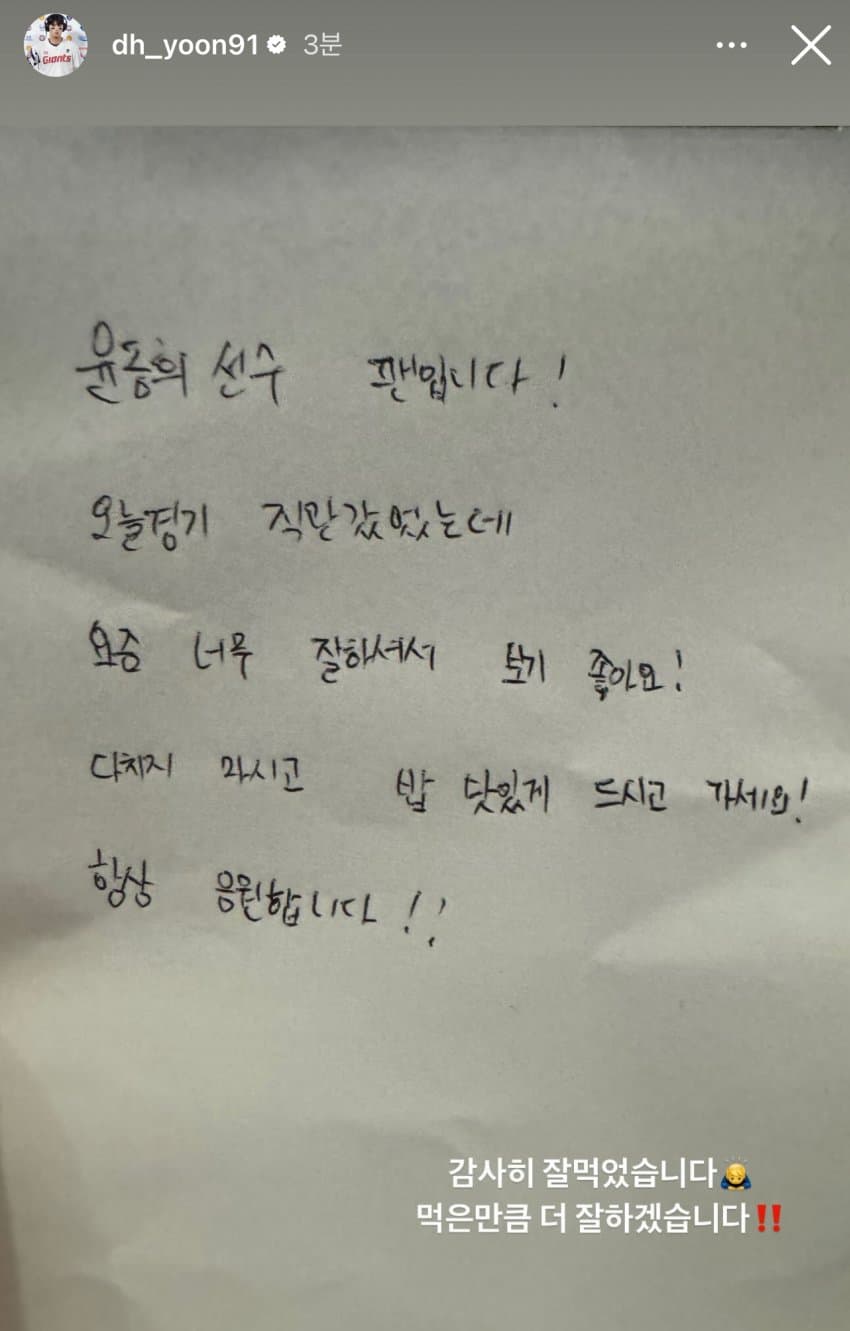 dh_yoon91 3분
Giants
윤동희 선수 팬입니다!
오늘경기 직관갔었는데
요즘 너무 잘하셔서 보기 좋아요!
다치지 마시고 밥 맛있게 드시고 가세요!
항상 응원합니다!!
감사히 잘먹었습니다🙇
먹은만큼 더 잘하겠습니다‼️